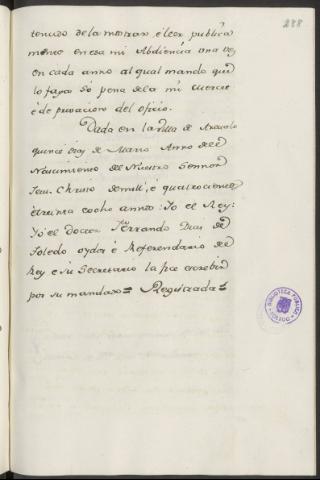 238
tenudo de la mostrar, é leer publica
mente en esa mi Abdiencia una vez
en cada anno al qual mando que
lo faga só pena de la mi merced
é de privacion del oficio.
Dada en la Villa de Arevalo
quince dias de Marzo Anno del
Nascimiento del Nuestro Sennor
Jesu Christo de mill, é quatrocientos
é treinta é ocho annos: Yo el Rey:
Yo el Doctor Ferrando Dias de
Toledo oydor é Referendario del
Rey é su Secretario la fice escrebir
por su mandado = Registrada =
BIBLIOTECA PUBLICA
TOLEDO